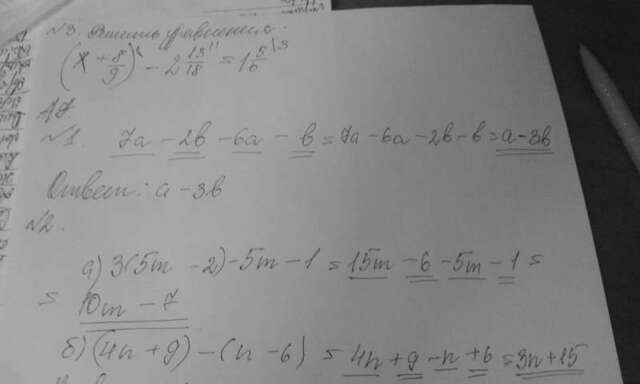 №3. Решить уравнения.
(x + 8/9) - 2 13/18 = 1 5/6
№1. 7a - 2b - 6a - b = 7a - 6a - 2b - b = a - 3b
Ответ: a - 3b
№2.
а) 3(5m - 2) - 5m - 1 = 15m - 6 - 5m - 1 =
= 10m - 7
б) (4n + 9) - (n - 6) = 4n + 9 - n + 6 = 3n + 15